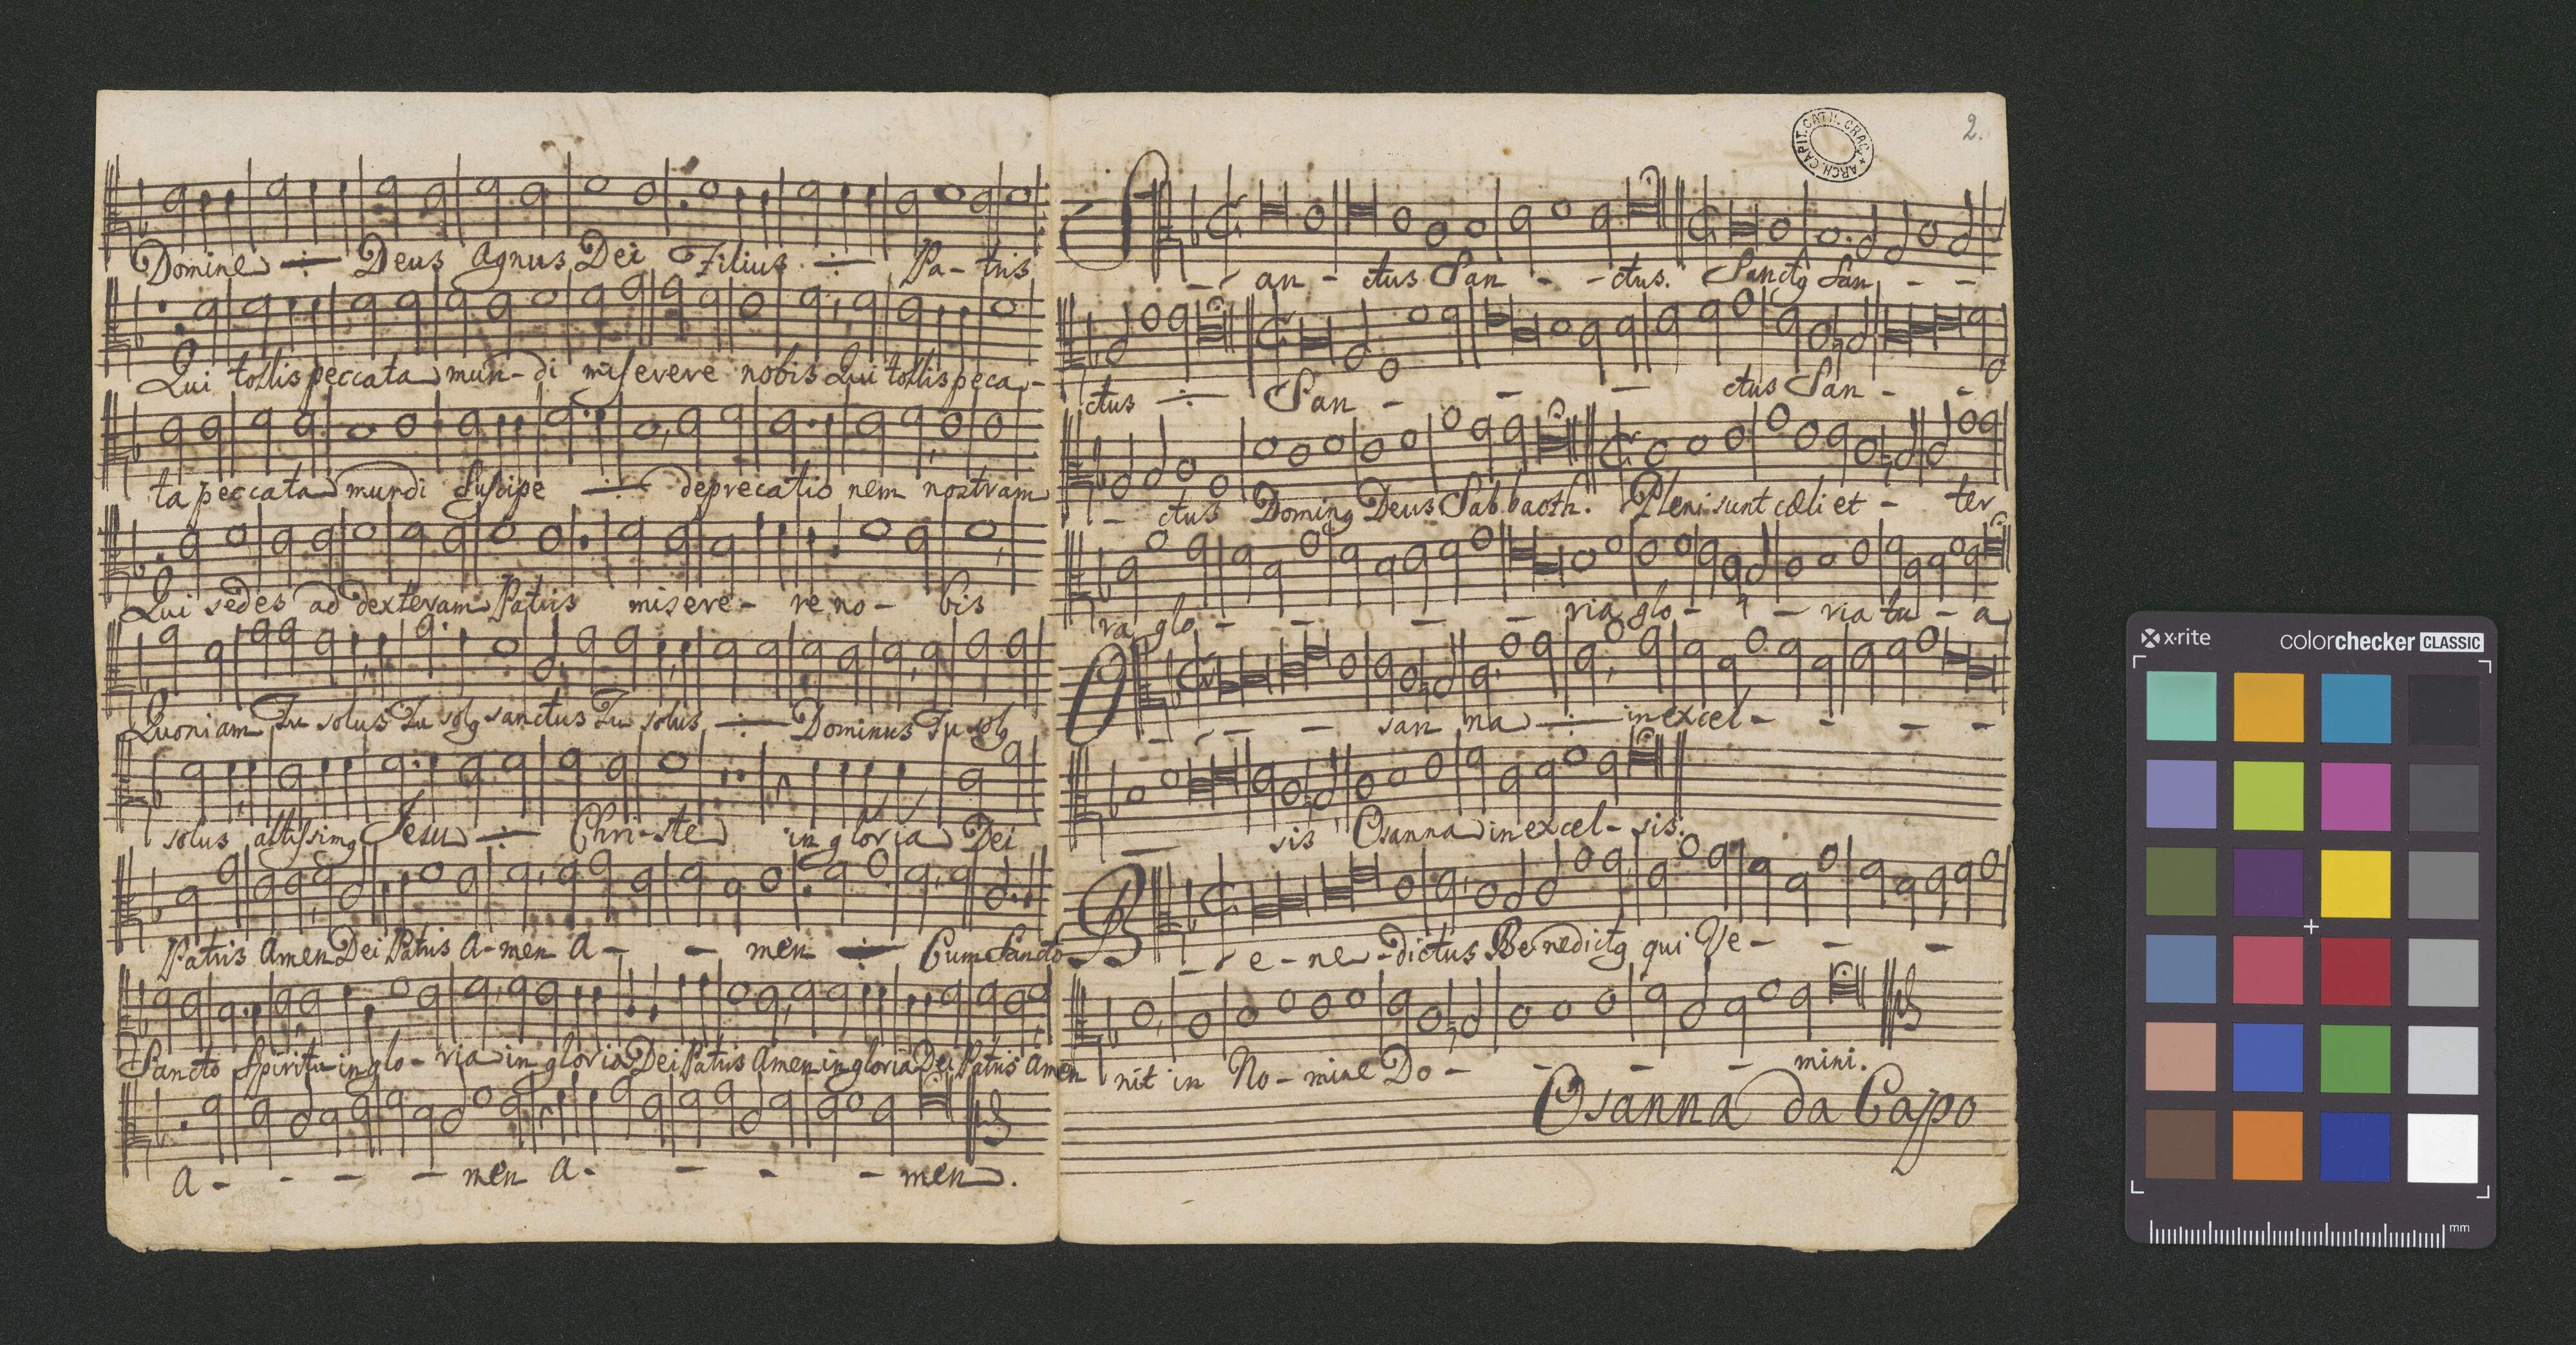 Domine ÷ Deus Agnus Dei Filius ÷ Pa- tris
Qui tollis peccata mun- di miserere nobis Qui tollis peca-
ta peccata mundi Suscipe ÷ deprecatio nem nostram
Qui sedes ad dexteram Patris misere- re no- bis
Quoniam Tu solus Tu solꝰ sanctus Tu solus ÷ Dominus Tu solꝰ
solus altissimꝰ Jesu ÷ Chri-ste in gloria Dei
Patris Amen Dei Patris A-men A- - men ÷ Cum Sancto
Sancto Spiritu in glo- ria in gloria Dei Patris Amen in gloria Dei Patris Amen
A- - - - men A- - - - men.
ARCH. CAPIT. CATH. CRAC.
2.
San - ctus San - - ctus. Sanctꝰ San - -
ctus ÷ San - - - ctus San - -
- ctus Dominꝰ Deus Sabbaoth. Pleni sunt cœli et - ter
ra glo - - - - ria glo - - - ria tu - a
O - - - san na ÷ in excel - - - -
- sis Osanna in excel - sis.
B - - e - ne - dictus Benedictꝰ qui Ve - - -
nit in No - mine Do - - - - mini.
Osanna da Capo
x·rite
colorchecker CLASSIC
mm